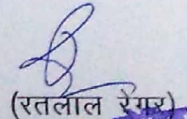 (रतलाल रेगर)